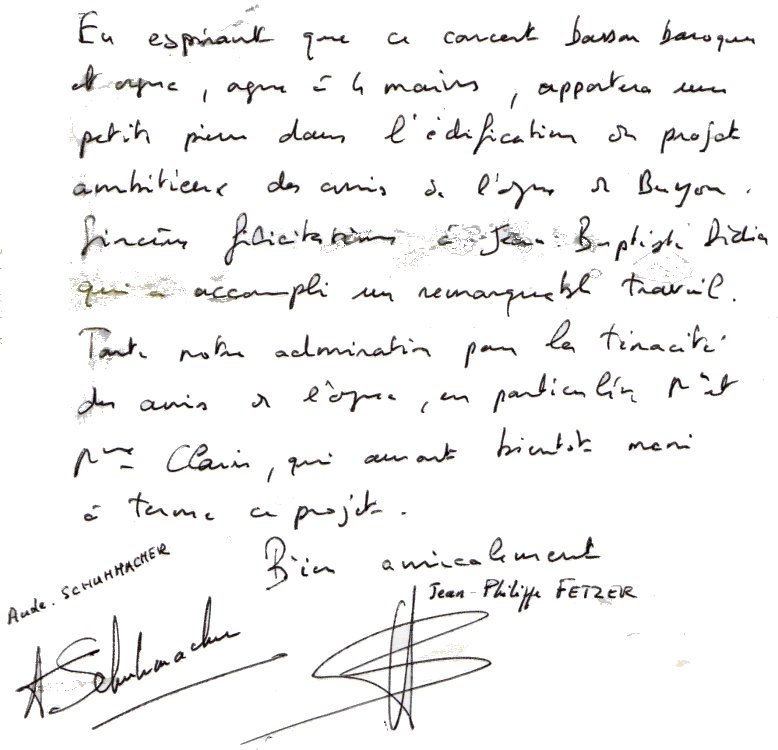 En espérant que ce concert basson baroque
et orgue, orgue à 4 mains, apportera une
petite pierre dans l'édification du projet
ambitieux des amis de l'orgue de
Sincères félicitations à Jean-Baptiste Didier
qui a accompli un remarquable travail.
Toute notre admiration pour la ténacité
des amis de l'orgue, en particulier Mr et
Mme Clavis, qui auront bientôt mené
à terme ce projet.
Bien amicalement
Aude. SCHUHMACHER
Jean-Philippe FETZER
A. Schuhmacher